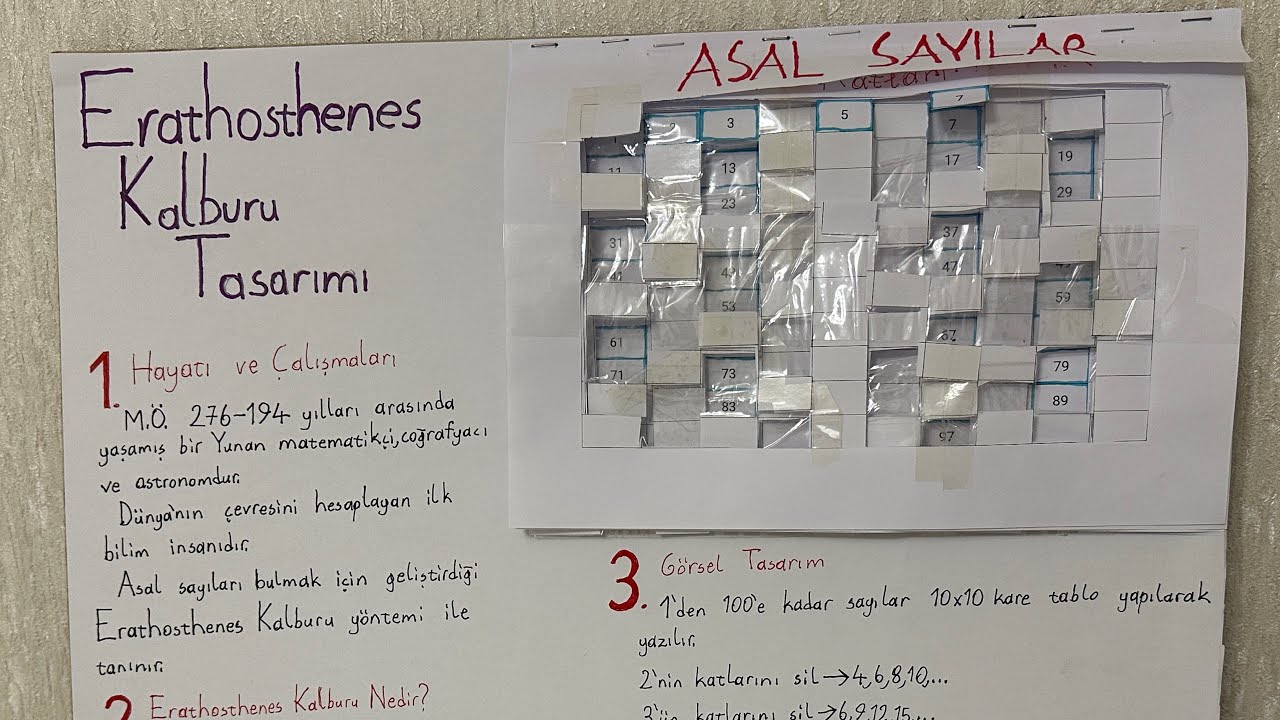 Erathosthenes
Kalburu
Tasarımı
1. Hayatı ve Çalışmaları
M.Ö. 276-194 yılları arasında
yaşamış bir Yunan matematikçi,coğrafyacı
ve astronomdur.
Dünya'nın çevresini hesaplayan ilk
bilim insanıdır.
Asal sayıları bulmak için geliştirdiği
Erathosthenes Kalburu yöntemi ile
tanınır.
2 Erathosthenes Kalburu Nedir?
ASAL SAYILAR
Katları
3 5 7
7
11 13 17 19
23 29
31 37
47
53 59
61 67
71 73 79
83 89
97
3. Görsel Tasarım
1'den 100'e kadar sayılar 10x10 kare tablo yapılarak
yazılır.
2'nin katlarını sil→4,6,8,10,...
3'ün katlarını sil→6,9,12,15,...